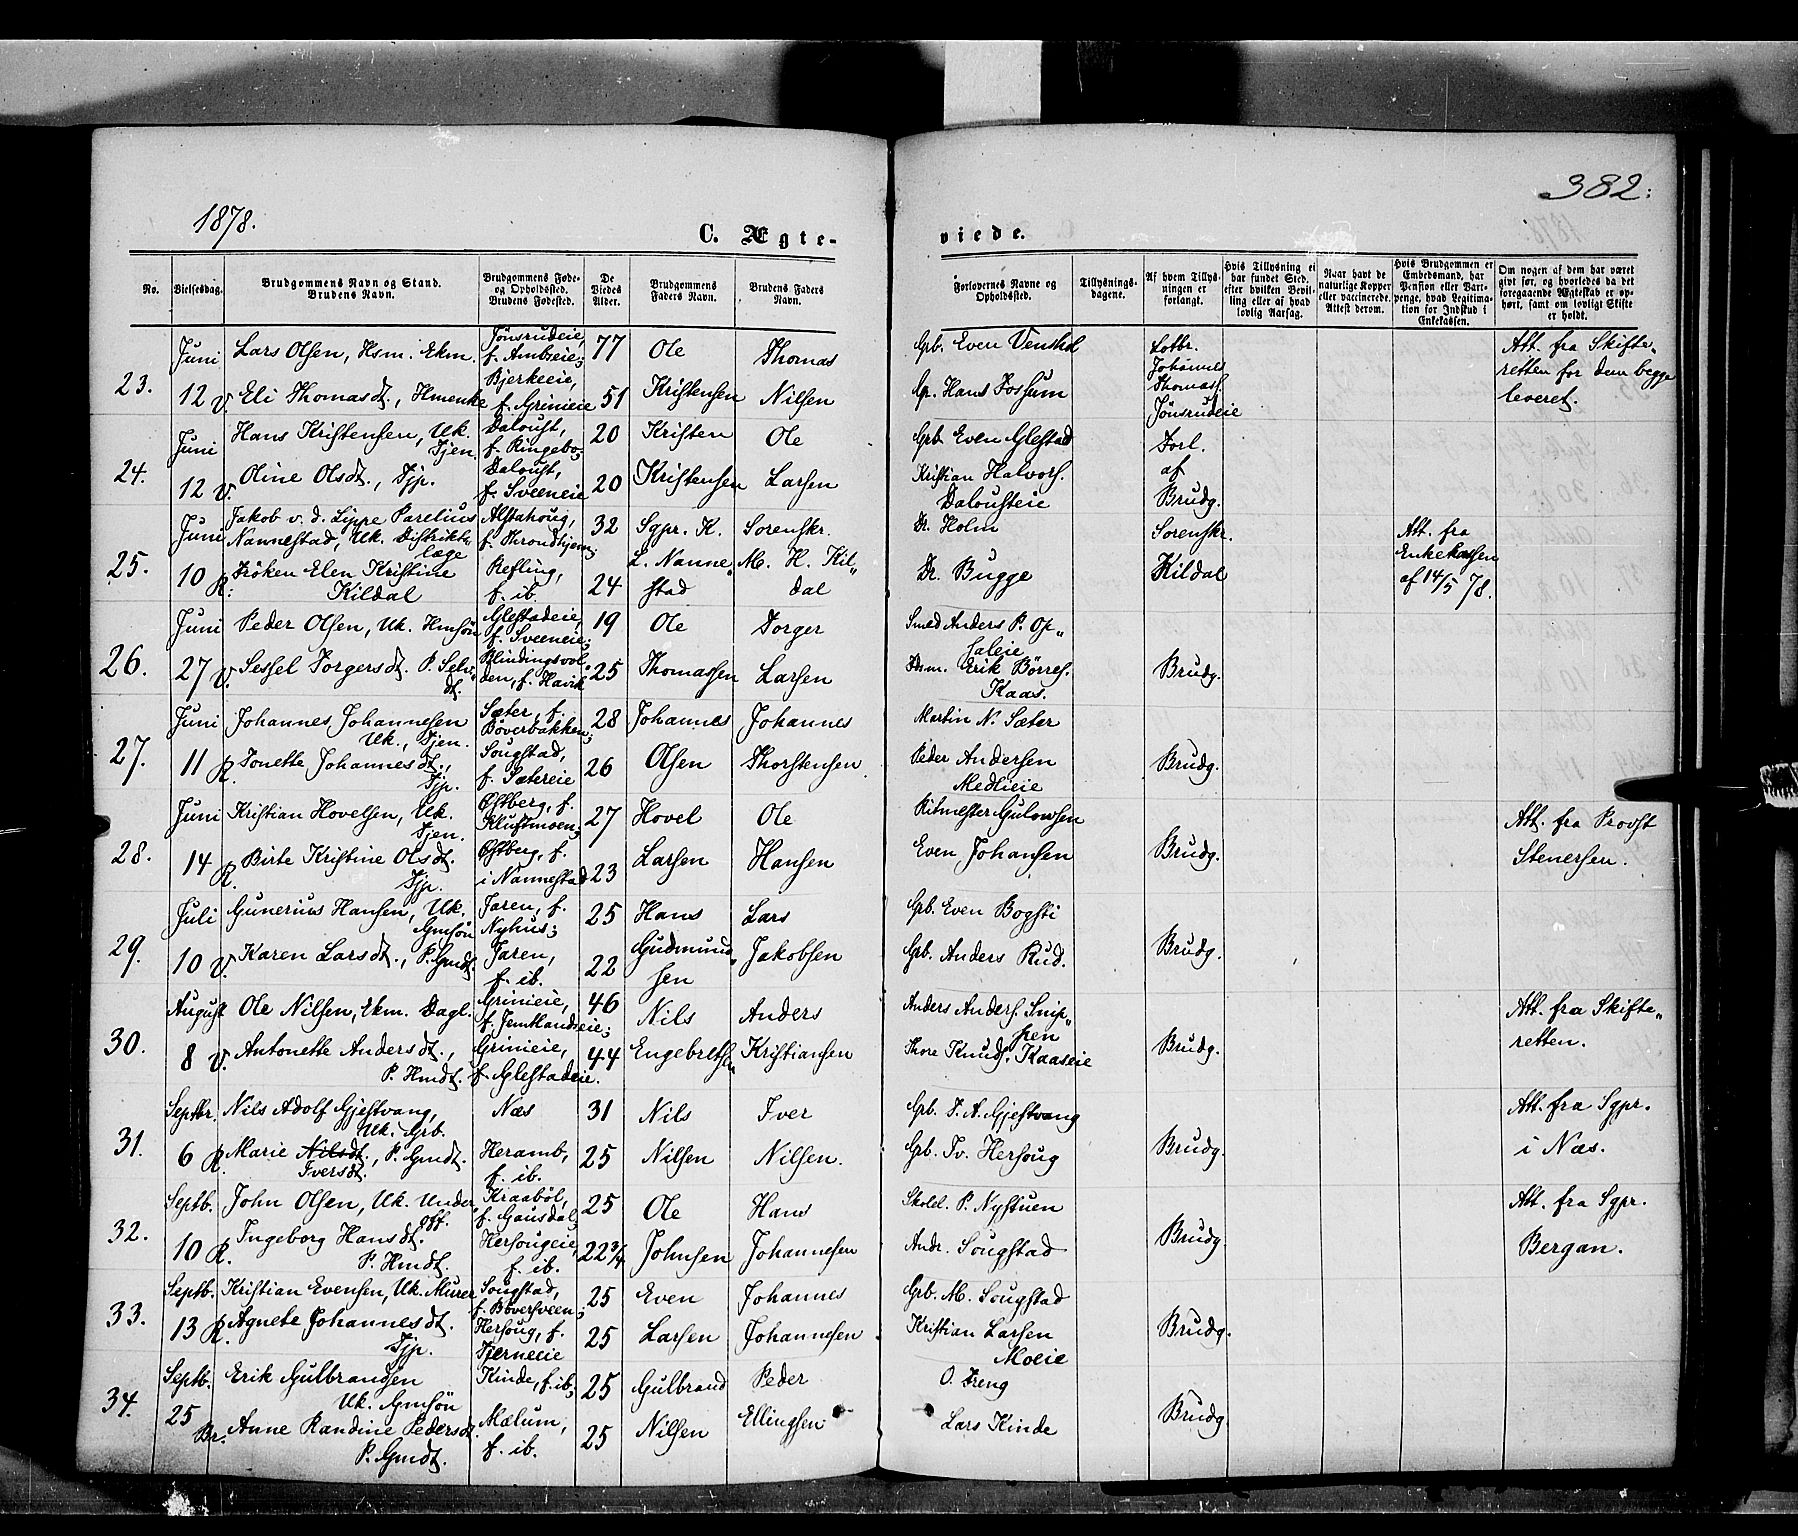 382.
1878.
C. Ægteviede.
No.
Vielsesdag.
Brudgommens Navn og Stand.
Brudens Navn.
Brudgommens Føde- og Opholdssted.
Brudens Fødested.
De Viedes Alder.
Brudgommens Faders Navn.
Brudens Faders Navn.
Forlovernes Navne og Opholdssted.
Tillysnings-dagene.
Af hvem Tillysningen er forlangt.
Hvis Tillysning ei har fundet Sted, efter hvilken Bevilling eller af hvad lovlig Aarsag.
Naar havt de naturlige Kopper eller vaccinerede. Attest derom.
Hvis Brudgommen er Embedsmand, har Pension eller Vartpenge, hvad Legitimation for Indskud i Enkekassen.
Om nogen af dem har været gift før, og hvorledes da det foregaaende Ægteskab er ophørt, samt om lovligt Skifte er holdt.
23. Juni 12 V.
Lars Olsen, Hsm. Ekm.
Eli Thomasdt., Hmenke
Jønsrudeie, f. Ambseie;
Bjerkeeie, f. Grinieie
77
51
Ole Kristensen
Thomas Nilsen
Grb. Even Venskol
Gp. Hans Fossum
Lotbr. Johannes Thomass. Jønsrudeie
Att. fra Skifte„retten for dem begge leveret.
24. Juni 12 V.
Hans Kristensen, Uk. Tjen.
Oline Olsdt., Tjp.
Daloust, f. Ringebo;
Daloust, f. Sveeneie
20
20
Kristen Kristensen
Ole Larsen
Grb. Even Glestad
Kristian Halvors. Dalousteie
Forl. af Brudg.
25. Juni 10 R.
Jakob v. d. Lippe Parelius Nannestad, Uk. Distriktslæge
Frøken Elen Kristine Kildal
Alstahoug, f. Throndhjem;
Refling, f. ib.
32
24
Sgpr. K. L. Nanne„stad
Sorenskr. M. H. Kil„dal
Dr. Holm
Dr. Bugge
Sorenskr. Kildal
Att. fra Enkekassen af 14/5 78.
26. Juni 27 V.
Peder Olsen, Uk. Hmsøn
Sessel Torgersdt. P. Selv„dt.
Glestadeie, f. Sveeneie;
Blindingsvolden, f. Havik
19
25
Ole Thomassen
Torger Larsen
Smed Anders P. Op„saleie
Hsm. Erik Børres. Kaas.
Brudg.
27. Juni 11 R.
Johannes Johannesen Uk., Tjen.
Tonette Johannesdt., Tjp.
Sæter, f. Bøverbakken;
Sougstad, f. Sætereie
28
26
Johannes Olsen
Johannes Thorstensen
Martin N. Sæter
Peder Andersen Medlieie
Brudg.
28. Juni 14 R.
Kristian Hovelsen, Uk. Tjen.
Birte Kristine Olsdt. Tjp.
Østberg, f. Kluftmoen;
Østberg, f. i Nannestad
27
23
Hovel Larsen
Ole Hansen
Ritmester Gulowsen
Even Johansen
Brudg.
Att. fra Provst Stenersen.
29. Juli 10 V.
Gunerius Hansen, Uk. Gmsøn
Karen Larsdt., P. Gmdt.
Jaren, f. Nyhus;
Jaren, f. ib.
25
22
Hans Gudmund„sen
Lars Jakobsen
Grb. Even Bogsti
Grb. Anders Rud.
Brudg.
30. August 8 V.
Ole Nilsen, Ekm. Dagl.
Antonette Andersdt., P. Hmdt.
Grinieie, f. Jemtlandseie;
Grinieie, f. Glestadeie.
46
44
Nils Engebretsen
Anders Kristiansen
Anders Anders. Snip„pen
Thore Knuds. Kaaseie
Brudg.
Att. fra Skifte„retten.
31. Septbr. 6 R.
Nils Adolf Gjestvang, Uk. Grb.
Marie Nilsdt. Iversdt., P. Gmdt.
Næs
Heramb, f. ib.
31
25
Nils Nilsen
Iver Nilsen.
Grb. T. A. Gjestvang
Grb. Iv. Hersoug
Brudg.
Att. fra Sgpr. i Næs.
32. Septb. 10 R.
John Olsen, Uk. Underoff.
Ingeborg Hansdt. P. Hmdt.
Kraabøl, f. Gausdal;
Hersougeie f. ib.
25
22 3/4
Ole Johnsen
Hans Johannesen
Skolel. P. Nystuen
Andr. Sougstad
Brudg
Att. fra Sgpr. Bergan.
33. Septb. 13 R.
Kristian Evensen, Uk. Murer
Agnete Johannesdt. Tjp.
Sougstad, f. Bøversveen;
Hersoug, f. Tjerneeie
25
25
Even Larsen
Johannes Johannesen
Grb. M. Sougstad
Kristian Larsen Moeie
Brudg.
34. Septb. 25 Br.
Erik Gulbrandsen Uk. Gmsøn
Anne Randine Pedersdt. P. Gmdt.
Kinde, f. ib;
Mælum, f. ib.
25
25
Gulbrand Nilsen
Peder Ellingsen
O. Freng
Lars Kinde
Brudg